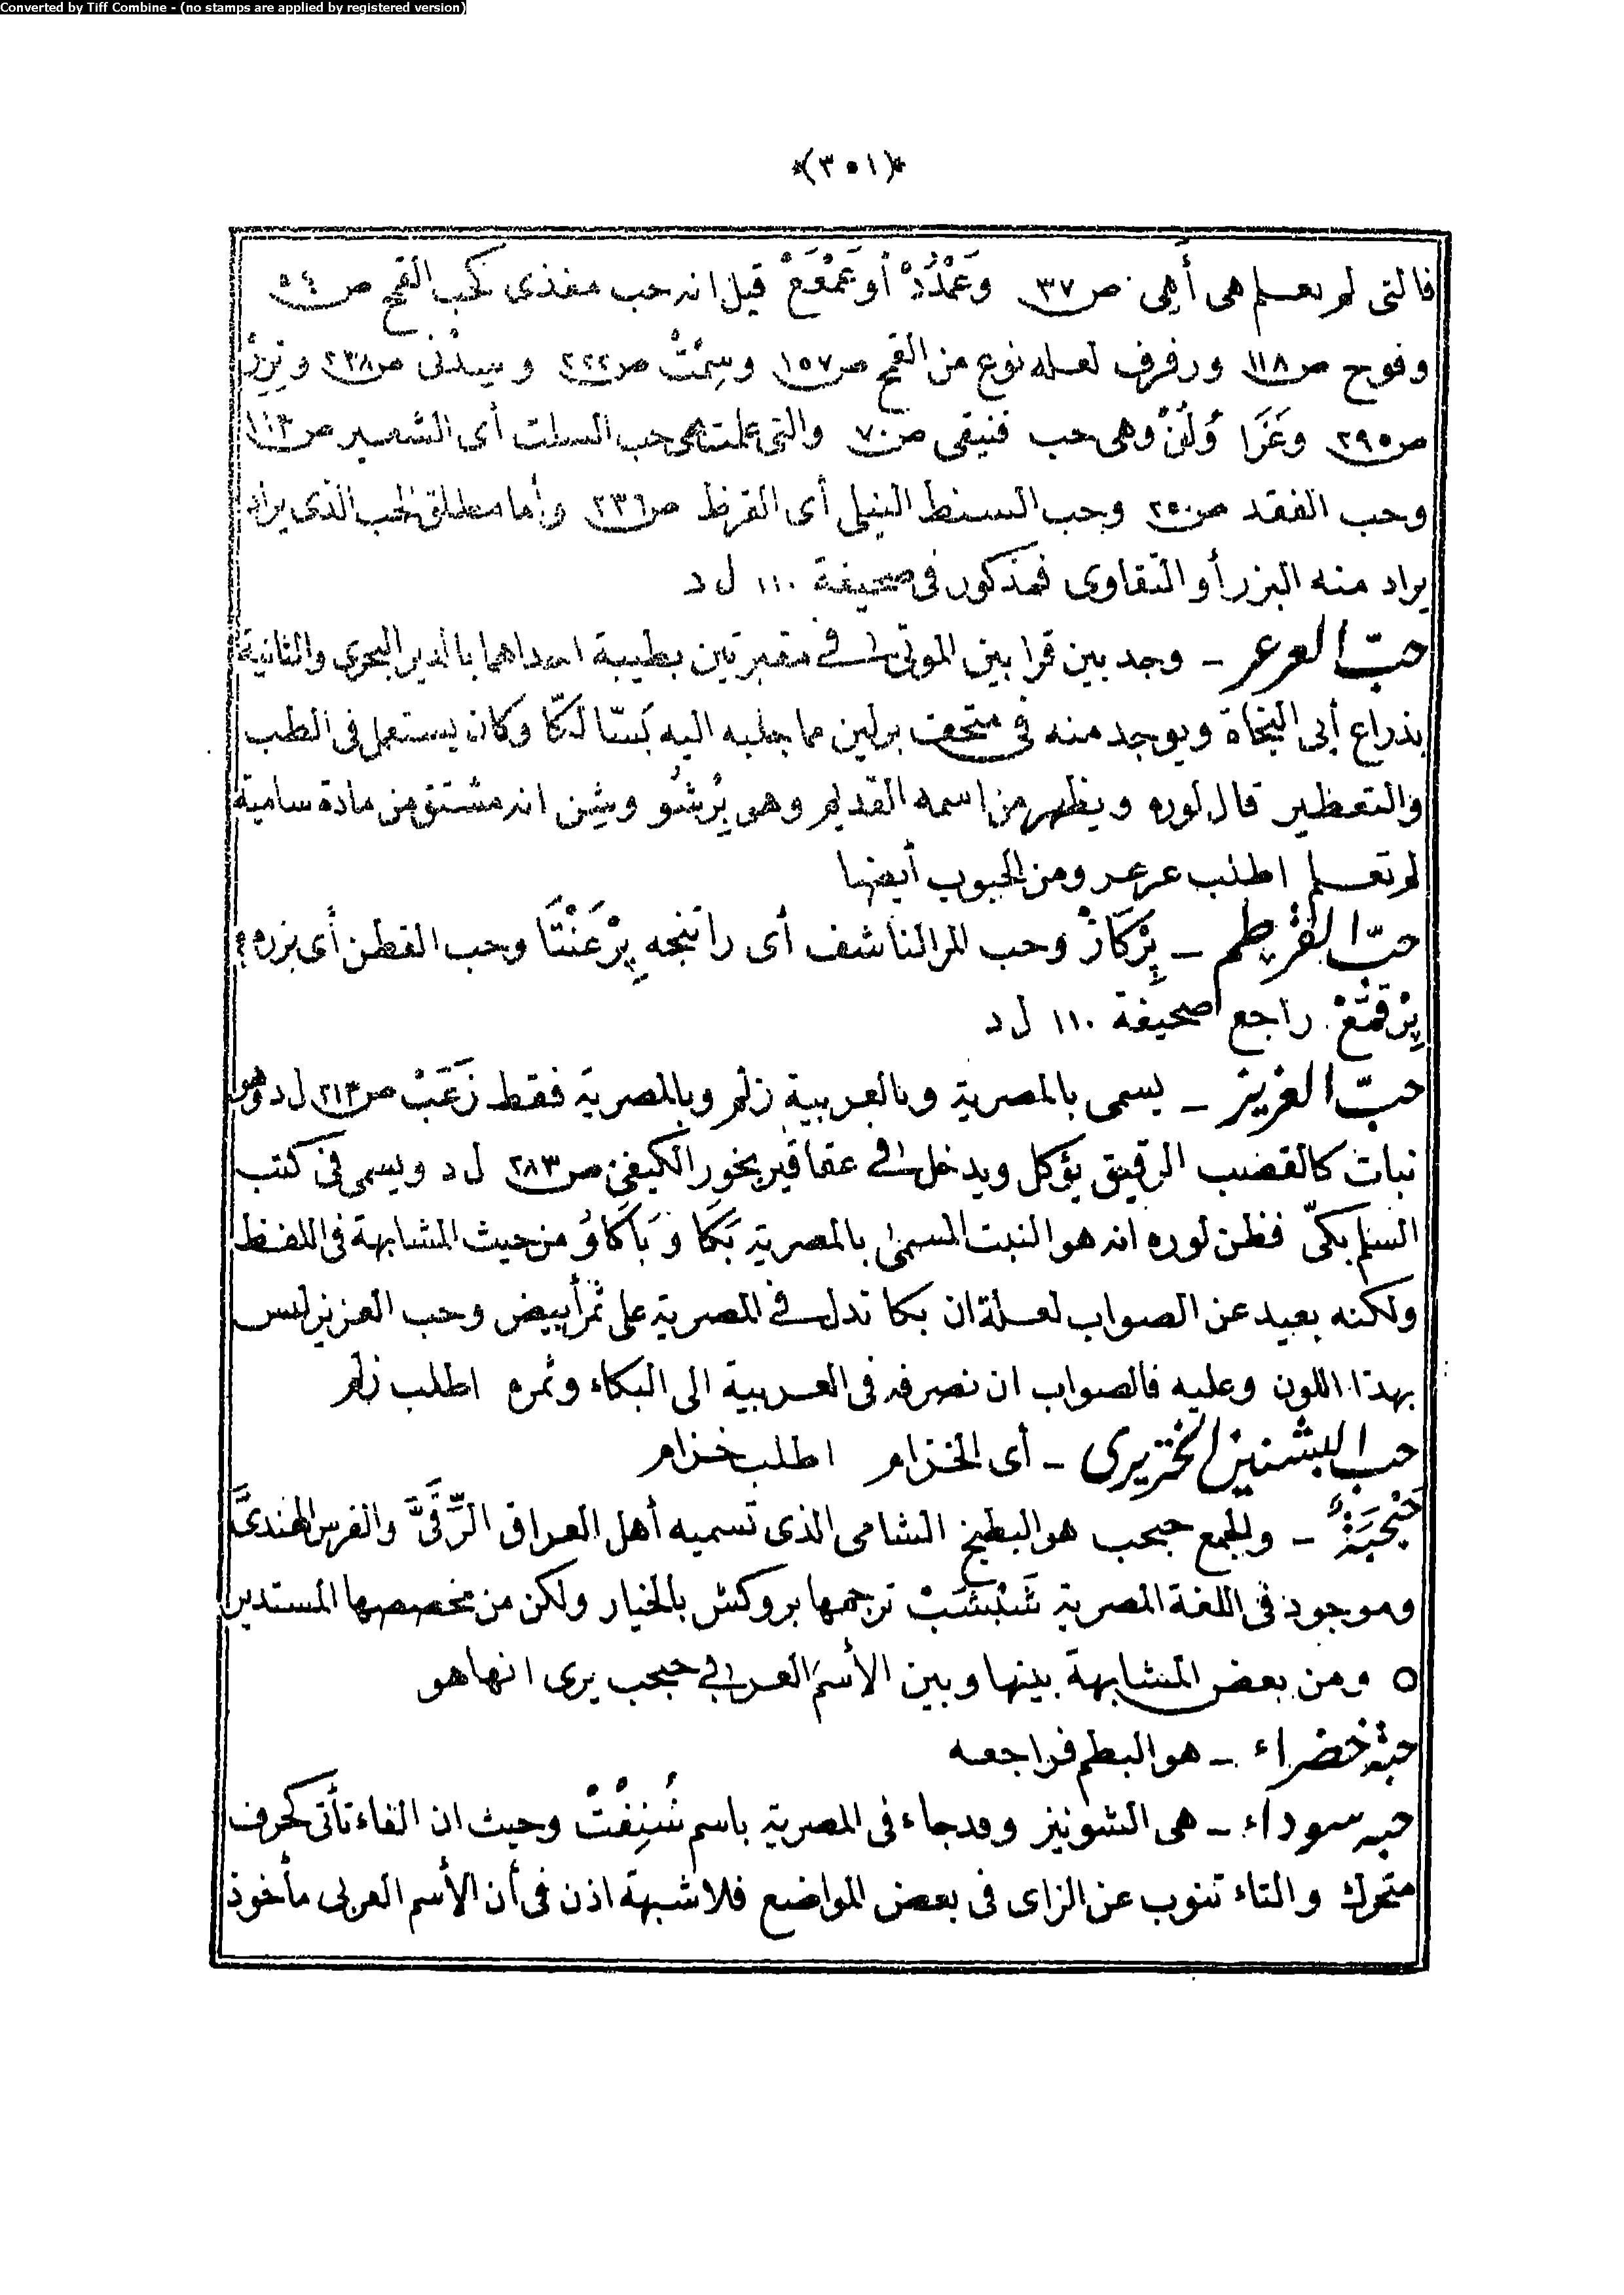 Converted by Tiff Combine - (no stamps are applied by registered version)
*(٣٥١)*
فالتى لم تعلم هى أهى ص٣٧ وَعَمْدُدْ أو عَمْعَعْ قيل انه حب مغذى كحب القمح ص٥٤
وفوح ص١١٨ ورفرف لعله نوع من القمح ص١٥٧ وسِمْتْ ص٢٢٤ و سِدْنى ص٢٣٨ و نِرِزْ
ص٢٩٥ وعَزَا وُلَنْ وهى حب فنيقى ص٧٠ والتى علمت هى حب السلت أى الشعير ص١١٣
وحب الفقد ص٢٥٠ وحب السنط النيلى أى القرظ ص٢٣٦ وأما مطلق الحب الذى يراد
يراد منه البزر أو التقاوى فمذكور فى صحيفة ١١٠ ل د
حبّ العرعر ـ وجد بين قرابين الموتى فى مقبرتين بطيبة احداهما بالدير البحرى والثانية
بذراع أبى النجاة ويوجد منه فى متحف برلين مما جلبه اليه بَسّالَكّا وكان يستعمل فى الطب
والتعطير قال لوره ويظهر من اسمه القديم وهو بُرشُو وشِن انه مشتق من مادة سامية
لم تعلم اطلب عرعر ومن الحبوب أيضا
حبّ القرطم ـ بِرْكَارْ وحب المر الناشف أى راتنجه بِرْعَنْتَا وحب القطن أى بزره
بِرْقمَّعْ راجع صحيفة ١١٠ ل د
حبّ العزيز ـ يسمى بالمصرية وبالعربية زلم وبالمصرية فقط زَعَبْ ص٣١٣ ل د وهو
نبات كالقضب الرقيق يؤكل ويدخل فى عقاقير بخور الكيفى ص٢٨٣ ل د ويسمى فى كتب
السلم بكىّ فظن لوره انه هو النبت المسمى بالمصرية بَكَا وَبَاكَاوُ من حيث المشابهة فى اللفظ
ولكنه بعيد عن الصواب لعلة ان بكا تدل فى المصرية على ثمر أبيض وحب العزيز ليس
بهذا اللون وعليه فالصواب ان نصرفه فى العربية الى البكاء وثمره اطلب زلم
حب البشنين الخنزيرى ـ أى الخزام اطلب خزام
حَبْحَبَةٌ ـ والجمع حبحب هو البطيخ الشامى الذى تسميه أهل العراق الرِّقَىَّ والفرس الهندىَّ
وموجود فى اللغة المصرية شَبْشَبْ ترجمها بروكش بالخيار ولكن من مخصصها المستدير
○ ومن بعض المشابهة بينها وبين الأسم العربى حبحب يرى انها هو
حبة خضراء ـ هو البطم فراجعه
حبه سوداء ـ هى الشونيز وقد جاء فى المصرية باسم شُنِفْتْ وحيث ان الفاء تأتى كحرف
متحرك والتاء تنوب عن الزاى فى بعض المواضع فلا شبهة اذن فى أن الأسم العربى مأخوذ